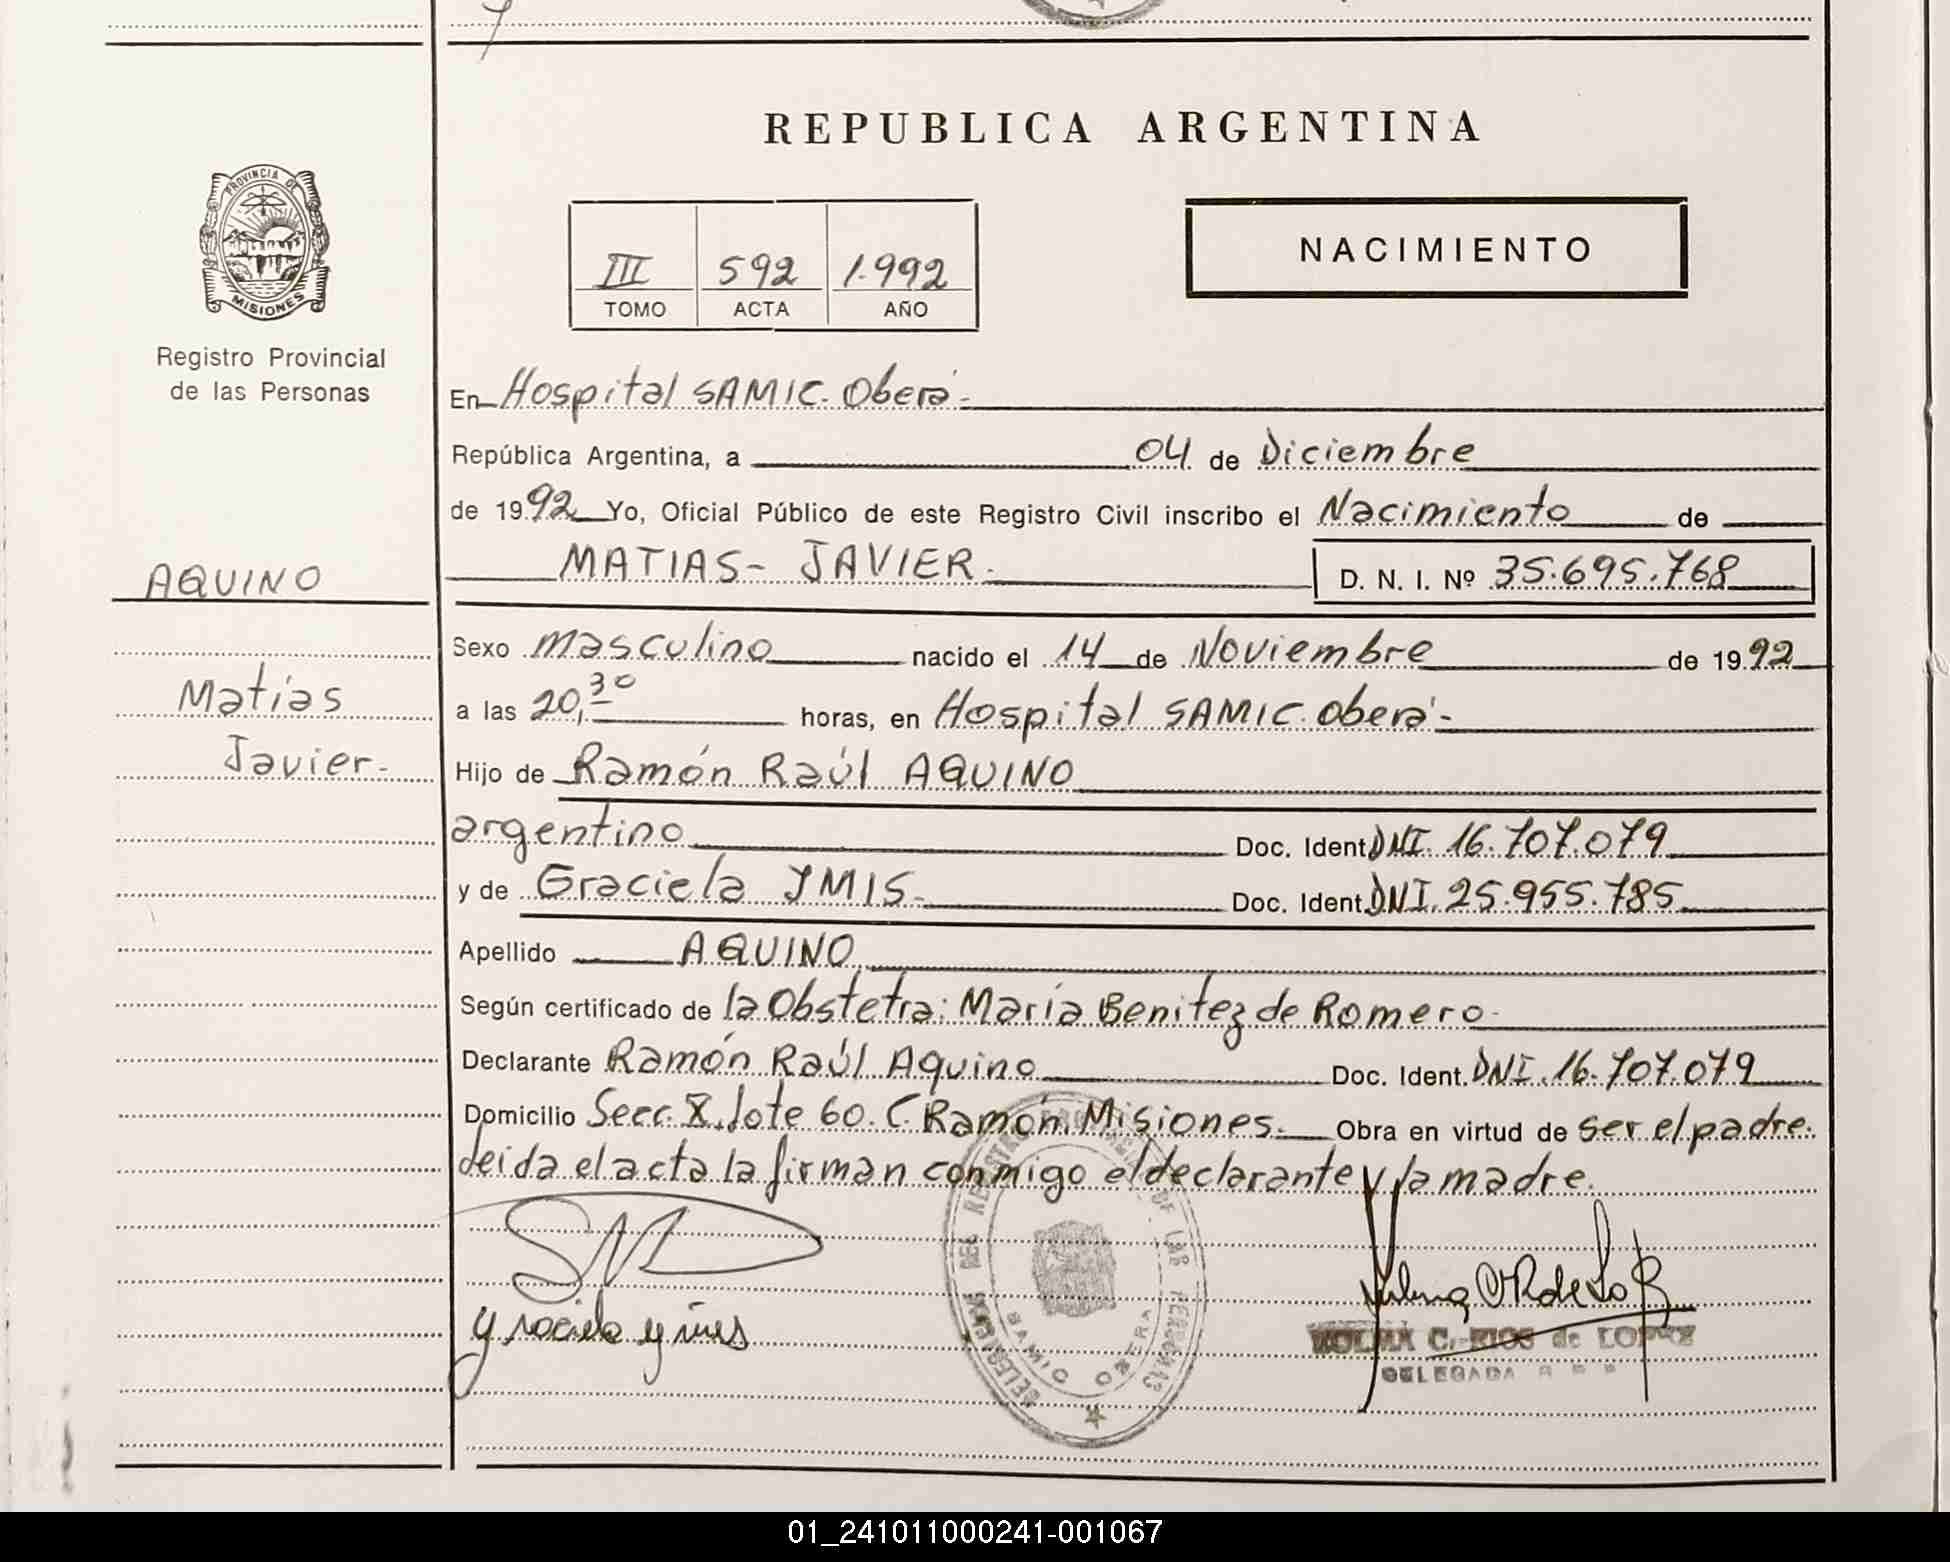 REPUBLICA ARGENTINA
PROVINCIA DE
MISIONES
Registro Provincial
de las Personas
III 592 1.992
TOMO ACTA AÑO
NACIMIENTO
En Hospital SAMIC. Oberá.-
República Argentina, a 04 de Diciembre
de 1992 Yo, Oficial Público de este Registro Civil inscribo el Nacimiento de
MATIAS- JAVIER.- D. N. I. Nº 35.695.768
AQUINO
Matías
Javier.-
Sexo masculino nacido el 14 de Noviembre de 1992
a las 20,30 horas, en Hospital SAMIC. Oberá.-
Hijo de Ramón Raúl AQUINO
argentino Doc. Ident. DNI. 16.707.079
y de Graciela YMIS.- Doc. Ident. DNI. 25.955.785
Apellido AQUINO
Según certificado de la Obstetra: María Benitez de Romero.-
Declarante Ramón Raúl Aquino Doc. Ident. DNI. 16.707.079
Domicilio Secc. X. lote 60. C. Ramón. Misiones. Obra en virtud de ser el padre.
Leida el acta la firman conmigo el declarante y la madre.
DEL REGISTRO PROVINCIAL DE LAS PERSONAS
SAMIC OBERA
C. RIOS de LOPEZ
DELEGADA
01_241011000241-001067